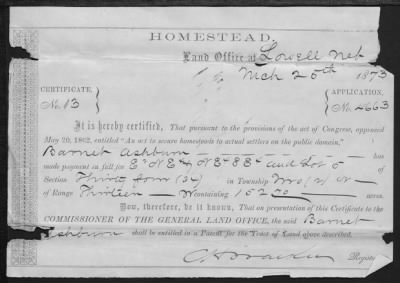 HOMESTEAD.
Land Office at Lowell Neb
Mch 25th 1873
CERTIFICATE,
No. 13
APPLICATION,
No. 4663
It is hereby certified, That pursuant to the provisions of the act of Congress, approved
May 20, 1862, entitled "An act to secure homesteads to actual settlers on the public domain,"
Barnet Ashburn has
made payment in full for E½ NE¼ NE¼ SE¼ and Lot 5 of
Section Thirty four (34) in Township Two (2) N
of Range Thirteen W containing 152 acres.
Now, therefore, be it known, That on presentation of this Certificate to the
COMMISSIONER OF THE GENERAL LAND OFFICE, the said Barnet
Ashburn shall be entitled to a Patent for the Tract of Land above described.
Register